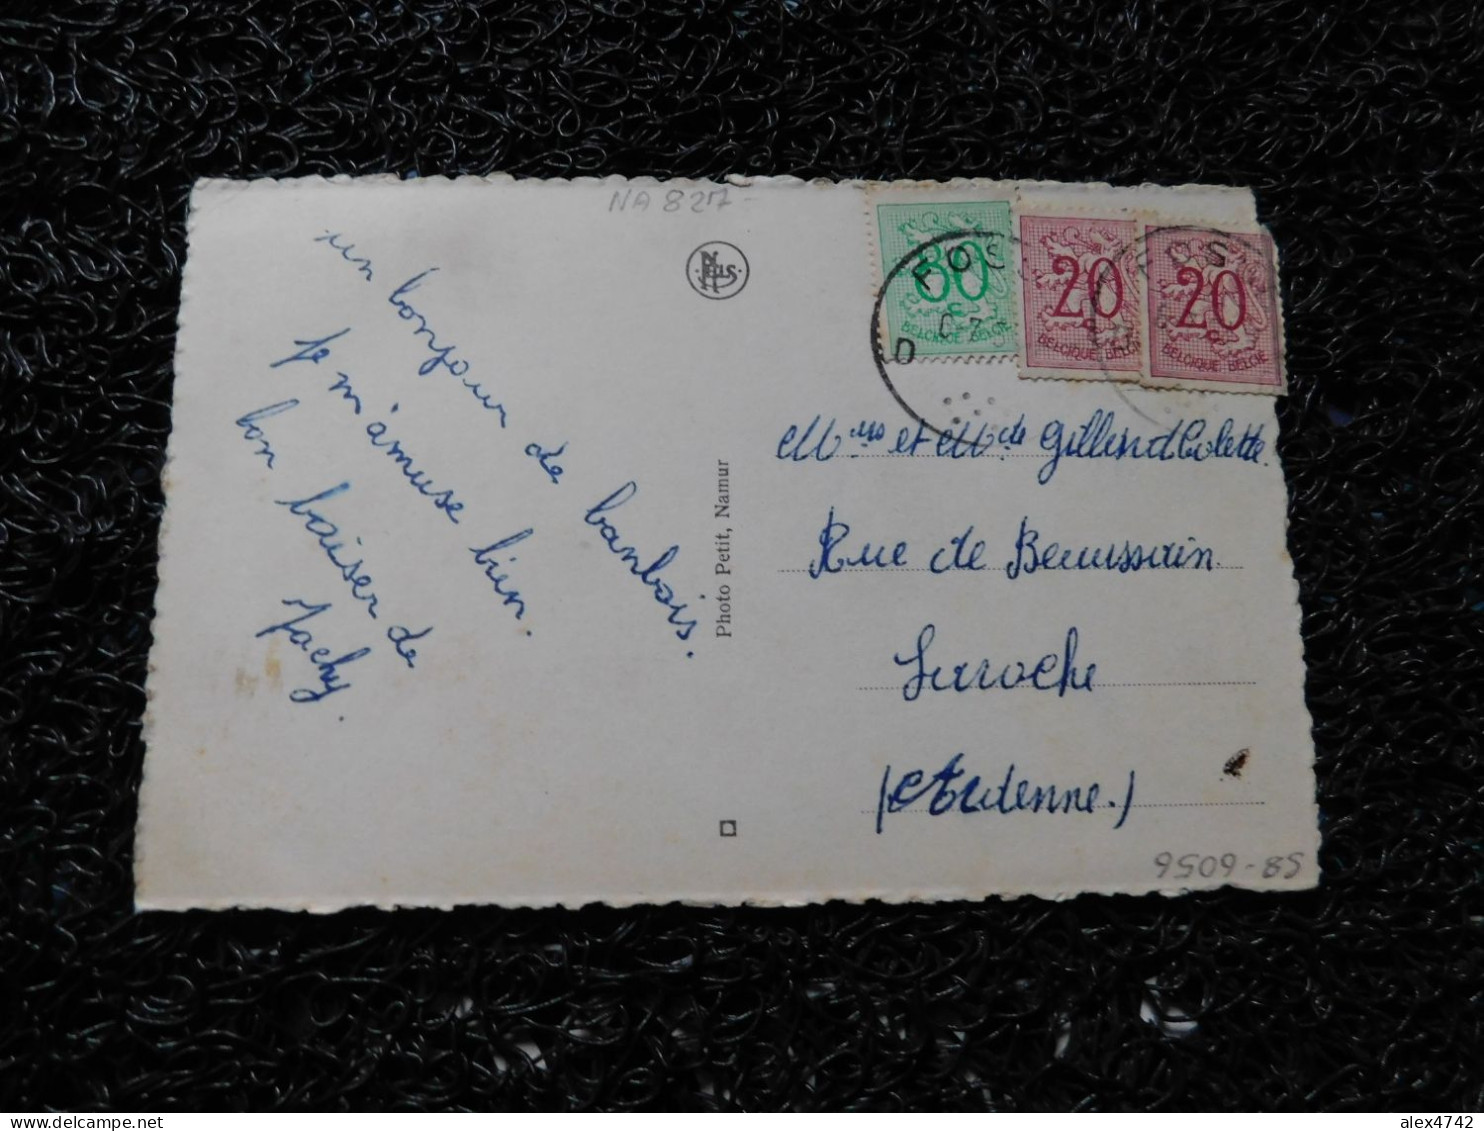 NA 827
un bonjour de banbois.
je m'amuse bien.
bon baiser de
Jacky.
NELS
Photo Petit, Namur
20
c
BELGIQUE BELGIË
20
c
BELGIQUE BELGIË
c
BELGIQUE BELGIË
D
et Gillend Colette.
Rue de Beaussain
Laroche
(Ardenne.)
9509-85
alex4742